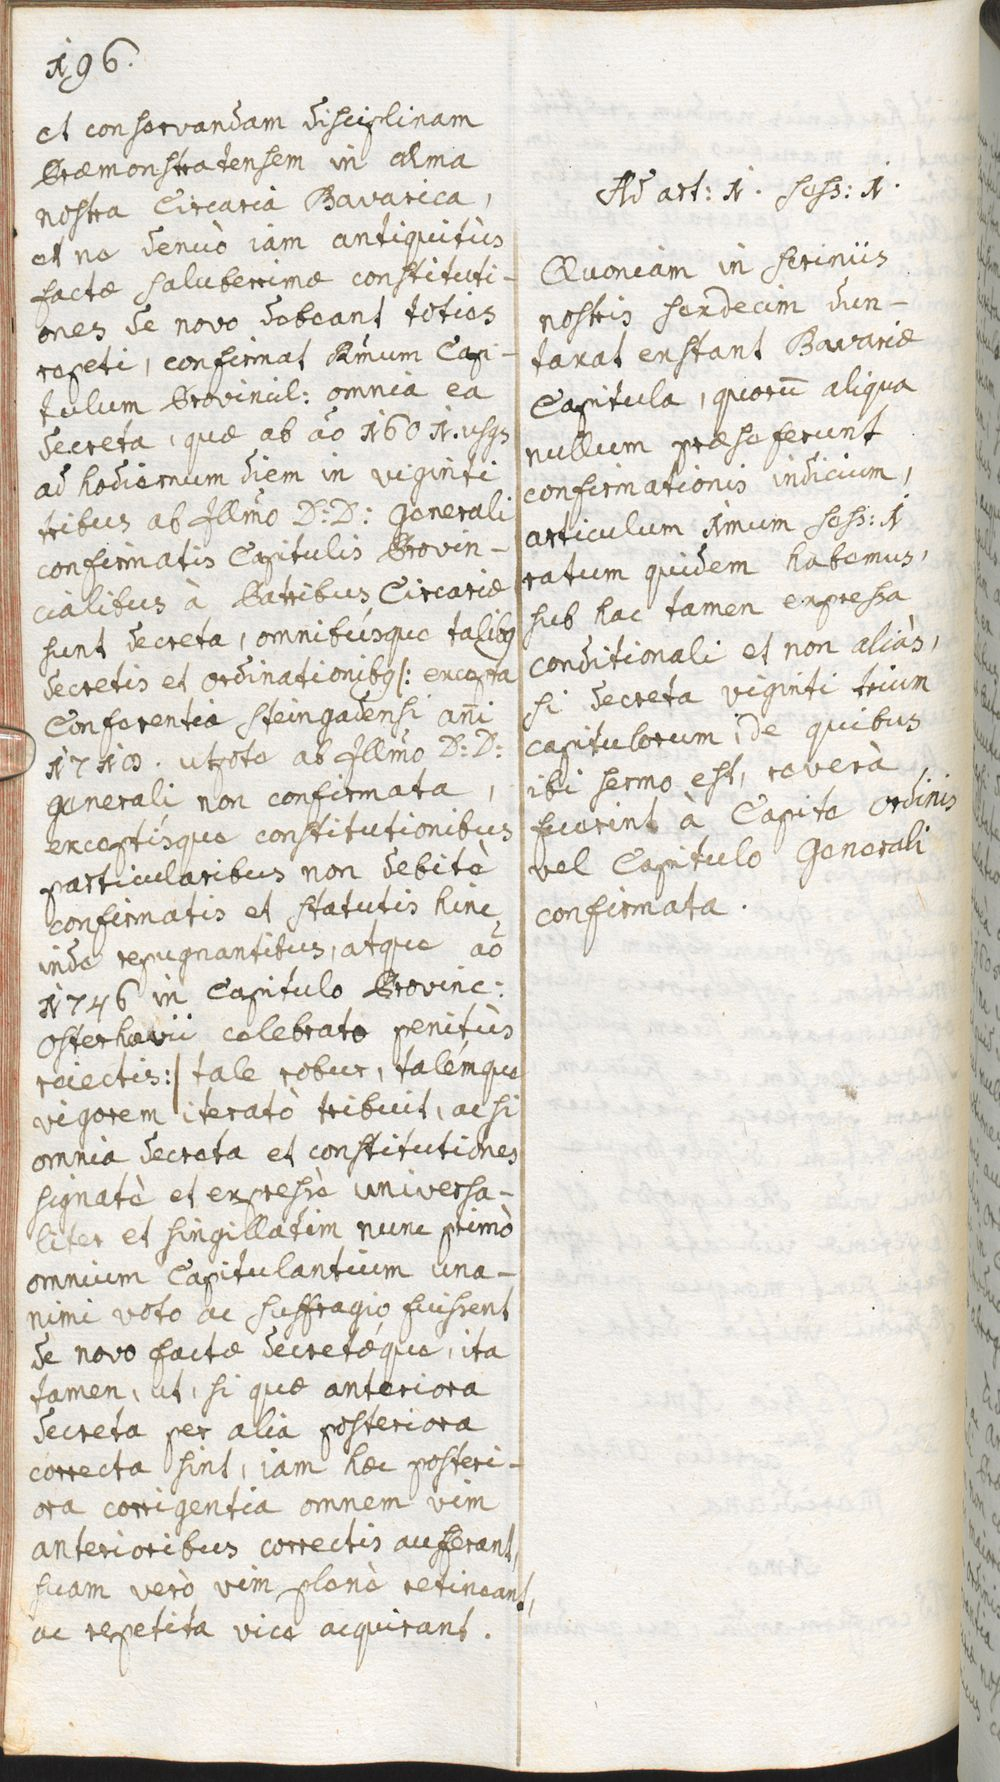 196.
et conservandam disciplinam
Præmonstratensem in alma
nostra Circaria Bavarica,
et ne denuò iam antiquitùs
factæ saluberrimæ constituti-
ones de novo debeant toties
repeti, confirmat Rm̃um Capi-
tulum Provincil: omnia ea
decreta, quæ ab aõ 1601. usqs
ad hodiernum diem in viginti
tribus ab Illm̃o D: D: Generali
confirmatis Capitulis Provin-
cialibus à Patribus Circariæ
sunt decreta, omnibúsque talibq
decretis et ordinationibq /: excepta
Conferentia Steingadensi añi
1718. utpote ab Illm̃o D: D:
Generali non confirmata,
exceptísque constitutionibus
particularibus non debitè
confirmatis et statutis hinc
inde repugnantibus, atque aõ
1746 in Capitulo Provinc:
Osterhovii celebrato penitùs
reiectis :/ tale robur, talémque
vigorem iteratò tribuit, ac si
omnia decreta et constitutiones
signatè et expressè universa-
liter et singillatim nunc primò
omnium Capitulantium una-
nimi voto ac suffragio fuissent
de novo factæ decretæque, ita
tamen, ut, si quæ anteriora
decreta per alia posteriora
correcta sint, iam hæc posteri-
ora corrigentia omnem vim
anterioribus correctis aufferant,
suam verò vim planè retineant,
ac repetita vice acquirant.
Ad art: 1. sess: 1.
Quoniam in scriniis
nostris sexdecim dun-
taxat exstant Bavariæ
Capitula, quorũ aliqua
nullum præseferunt
confirmationis indicium,
articulum 1mum sess: 1
ratum quidem habemus,
sub hac tamen expressa
conditionali et non aliàs,
si decreta viginti trium
capitulorum, de quibus
ibi sermo est, reverà
fuerint à Capite Ordinis
vel Capitulo Generali
confirmata.